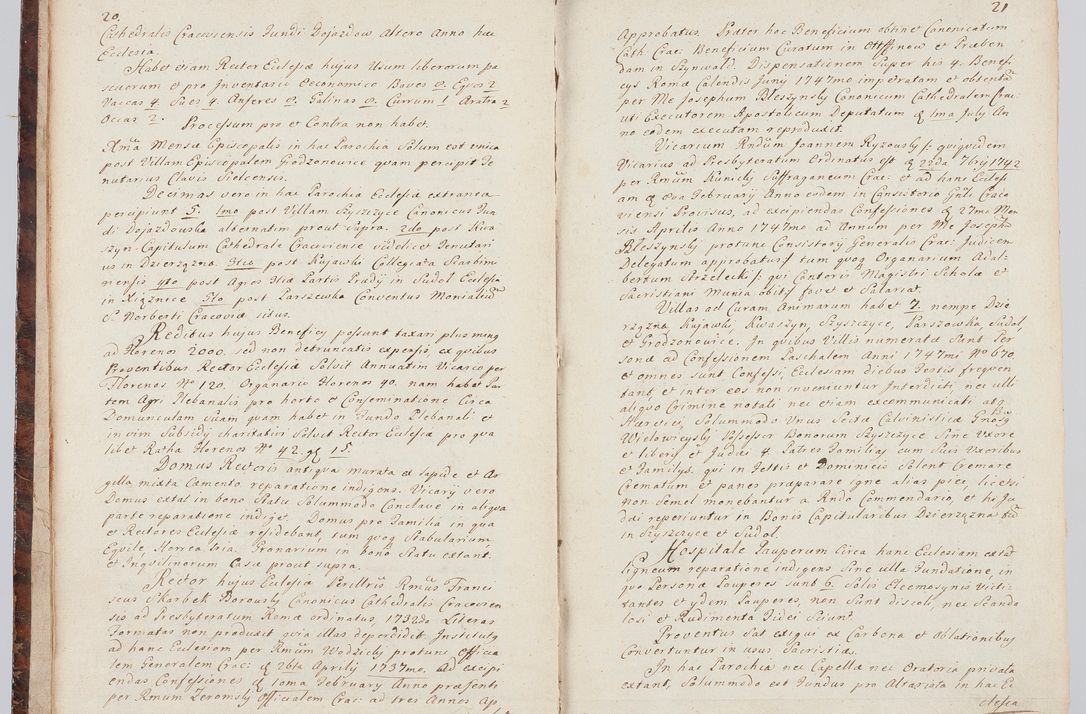 20.
Cathedralis Cracoviensis Fundi Dojazdow altero Anno hac
Ecclesia.
Habet etiam Rector Ecclesiæ hujus Usum liberarum pa
scuorum et pro Inventario Oeconomico Boves 0. Equos 2
Vaccas 4. Sues 4. Anseres 0. Galinas 0. Currum 1 Aratra 2
Occas 2. Processum pro et Contra non habet.
Mensæ Episcopalis in hac Parochia Solum est unica
post Villam Episcopalem Grodzonowice quam percipit Te
nutarius Clavis Kielcensis.
Decimas vero in hac Parochia Ecclesiæ extraneæ
percipiunt 5. 1mo post Villam Szyszczyce Canonicus Fun
di Dojazdowska alternatim prout Supra. 2do post Kwa
szyn Capitulum Cathedrale Cracoviense videlicet Tenutari
us in Dzierzązna. 3tio post Kujawki Collegiata Skarbimi
riensis 4to post Agros Partis Prædij in Sudol Ecclesia
in Xiąznice 5to post Parszowka Conventus Monialiũ
S. Norberti Cracoviæ situs.
Reditus hujus Beneficij possunt taxari plus minq
ad Florenos 2000. sed non detruncatis expensis, ex quibus
Proventibus Rector Ecclesiæ Solvit Annuatim Vicario per
Florenos No 120. Organario Florenos 40. nam habet Par
tem Agri Plebanalis pro horto et Conseminatione Circa
Domunculam Suam quam habet in Fundo Plebanali et
in vim Subsidij charitativi Solvit Rector Ecclesiæ pro qua
libet Ratha Florenos No 42. gł 15.
Domus Rectoris antiqua murata ex lapide et Ar
gilla mixta Cæmento reparatione indigens. Vicarij vero
Domus extat in bono Statu Solummodo Conclave in aliqua
parte reparatione indiget. Domus pro Familia in qua
et Rectores Ecclesiæ residebant, tum quoq Stabularium
Equile, Horrea tria, Granarium in bono Statu extant.
et Inquilinorum Casa prout supra.
Rector hujus Ecclesiæ Perillris Rmũs Franci
scus Skarbek Borowsky Canonicus Cathedralis Cracovien
sis ad Presbyteratum Romæ ordinatus, 1732do Literas
Formatas non produxit quia illas deperdidit Institutq
ad hanc Ecclesiam per Rmũm Wodzicky protunc Officia
lem Generalem Crac: ꝗ 26ta Aprilis 1737mo. Ad excipi
endas Confessiones ꝗ 10ma February Anno præsenti
per Rmum Jeromsky Officialem Crac: ad tres Annos Ap,
21
Approbatus. Præter hoc Beneficium obtinet Canonicatum
Cath: Crac: Beneficium Curatum in et Præben
dam in Szynwald. Dispensationem Super his 4. Benefi
cys Roma Calendis Junij 1747mo impetratam et obtentã
per Me Josephum Bleszynsky Canonicum Cathedralem Crac:
uti Executorem Apostolicum Deputatum ꝗ 1ma July An
no eodem executam reproduxit.
Vicarium Rndum Joannem Ryzowsky /: quiquidem
Vicarius ad Presbyteratum Ordinatus est ꝗ 22da 7bris 1742
per Rmũm Kunicky Suffraganeum Crac: et ad hanc Eccles
am ꝗ 8va February Anno eodem in Consistorio Gnli Craco
viensi Provisus, ad excipiendas Confessiones ꝗ 27mo Men
sis Aprilis Anno 1747mo ad Annum per Me Josephũ
Bleszynsky protunc Consistory Generalis Crac: Judicem
Delegatum approbatus / tum quoq Organarium Adal-
bertum Strzelecki /: qui Cantoris Magistri Scholæ et
Sacristiani Munia obit / fovet et Salariat.
Villas ad Curam Animarum habet 7. nempe Dzie
rzązna, Kujawki, Kwaszyn, Szyszczyce, Parszowka, Sudol,
et Grodzonowice. In quibus Villis numeratæ Sunt Per
sonæ ad Confessionem Paschalem Anni 1747mi No 670.
et omnes sunt Confessi, Ecclesiam diebus Festis frequen
tant, et inter eos non inveniuntur Interdicti nec ulli
aliquo Crimine notati nec etiam excommunicati atq
Hæretici, Solummodo Unus Sectæ Calvinisticæ Gnosq
Wielowieysky Possessor Bonorum Szyszczyce Sine Uxore
et liberis et Judæi 4. Patres Familias cum Suis Uxoribus
et Familys. qui in Festis et Dominicis Solent Cremare
Crematum et panes præparare igne alias piec, licet
non Semel monebantur a Rndo Commendario, et hi Ju
dæi reperiuntur in Bonis Capitularibus Dzierzązna tũ
in Szyszczyce et Sudol.
Hospitale Pauperum Circa hanc Ecclesiam extat
ligneum reparatione indigens Sine ulla Fundatione, in
quo Personæ Pauperes sunt 6. Solis Eleemosynis Victi-
tantes et ydem Pauperes, non Sunt discoli, nec Scanda
losi et Rudimenta Fidei Sciunt.
Proventus Sat exigui ex Carbona et Oblationibus
Convertuntur in usus Sacristiæ.
In hac Parochia nec Capellæ nec Oratoria privata
extant, Solummodo est Fundus pro Altarista in hac Ec
clesia